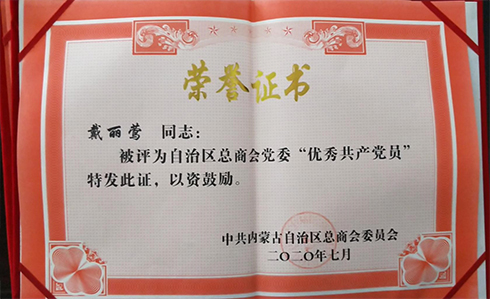 荣誉证书
戴丽莺 同志：
被评为自治区总商会党委“优秀共产党员”
特发此证，以资鼓励。
中共内蒙古自治区总商会委员会
二〇二〇年七月